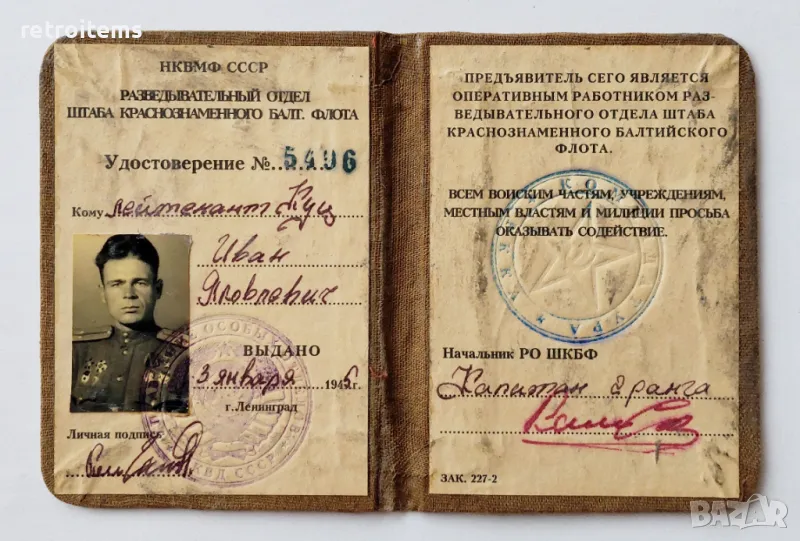 retroitems
НКВМФ СССР
РАЗВЕДЫВАТЕЛЬНЫЙ ОТДЕЛ
ШТАБА КРАСНОЗНАМЕННОГО БАЛТ. ФЛОТА
Удостоверение №..5496
Кому лейтенант Куц
Иван
Яковлевич
ВЫДАНО
3 января 1945г.
г. Ленинград
Личная подпись
ОСОБЫ
НКВД СССР
ПРЕДЪЯВИТЕЛЬ СЕГО ЯВЛЯЕТСЯ
ОПЕРАТИВНЫМ РАБОТНИКОМ РАЗ-
ВЕДЫВАТЕЛЬНОГО ОТДЕЛА ШТАБА
КРАСНОЗНАМЕННОГО БАЛТИЙСКОГО
ФЛОТА.
ВСЕМ ВОИСКИМ ЧАСТЯМ, УЧРЕЖДЕНИЯМ,
МЕСТНЫМ ВЛАСТЯМ И МИЛИЦИИ ПРОСЬБА
ОКАЗЫВАТЬ СОДЕЙСТВИЕ.
Начальник РО ШКБФ
Капитан 2 ранга
ЗАК. 227-2
BAZAR